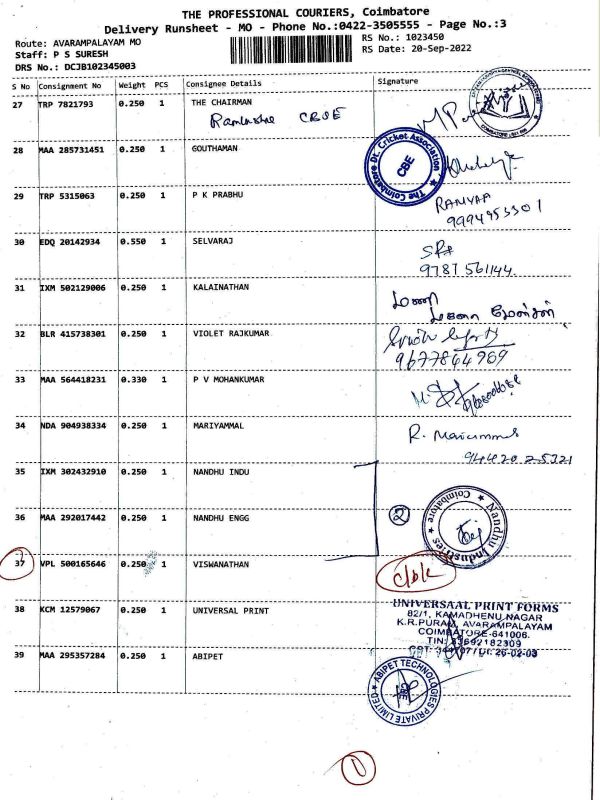 THE PROFESSIONAL COURIERS, Coimbatore
Delivery Runsheet - MO - Phone No.:0422-3505555 - Page No.:3
Route: AVARAMPALAYAM MO
RS No.: 1023450
Staff: P S SURESH
RS Date: 20-Sep-2022
DRS No.: DCJB102345003
S No Consignment No Weight PCS Consignee Details Signature
27 TRP 7821793 0.250 1 THE CHAIRMAN
CBSE
28 MAA 285731451 0.250 1 GOUTHAMAN
The Coimbatore Dt. Cricket Association
CBE
29 TRP 5315063 0.250 1 P K PRABHU
RAMYAA
30 EDQ 20142934 0.550 1 SELVARAJ
9787 561144
31 IXM 502129006 0.250 1 KALAINATHAN
32 BLR 415738301 0.250 1 VIOLET RAJKUMAR
9677844969
33 MAA 564418231 0.330 1 P V MOHANKUMAR
34 NDA 904938334 0.250 1 MARIYAMMAL
94420 25321
35 IXM 302432910 0.250 1 NANDHU INDU
36 MAA 292017442 0.250 1 NANDHU ENGG
2
Nandhu Industries
Coimbatore
37 VPL 500165646 0.250 1 VISWANATHAN
38 KCM 12579067 0.250 1 UNIVERSAL PRINT
UNIVERSAAL PRINT FORMS
82/1, KAMADHENU NAGAR
K.R.PURAM, AVARAMPALAYAM
COIMBATORE-641006.
39 MAA 295357284 0.250 1 ABIPET
ABIPET TECHNOLOGIES PRIVATE LIMITED
CBE
1